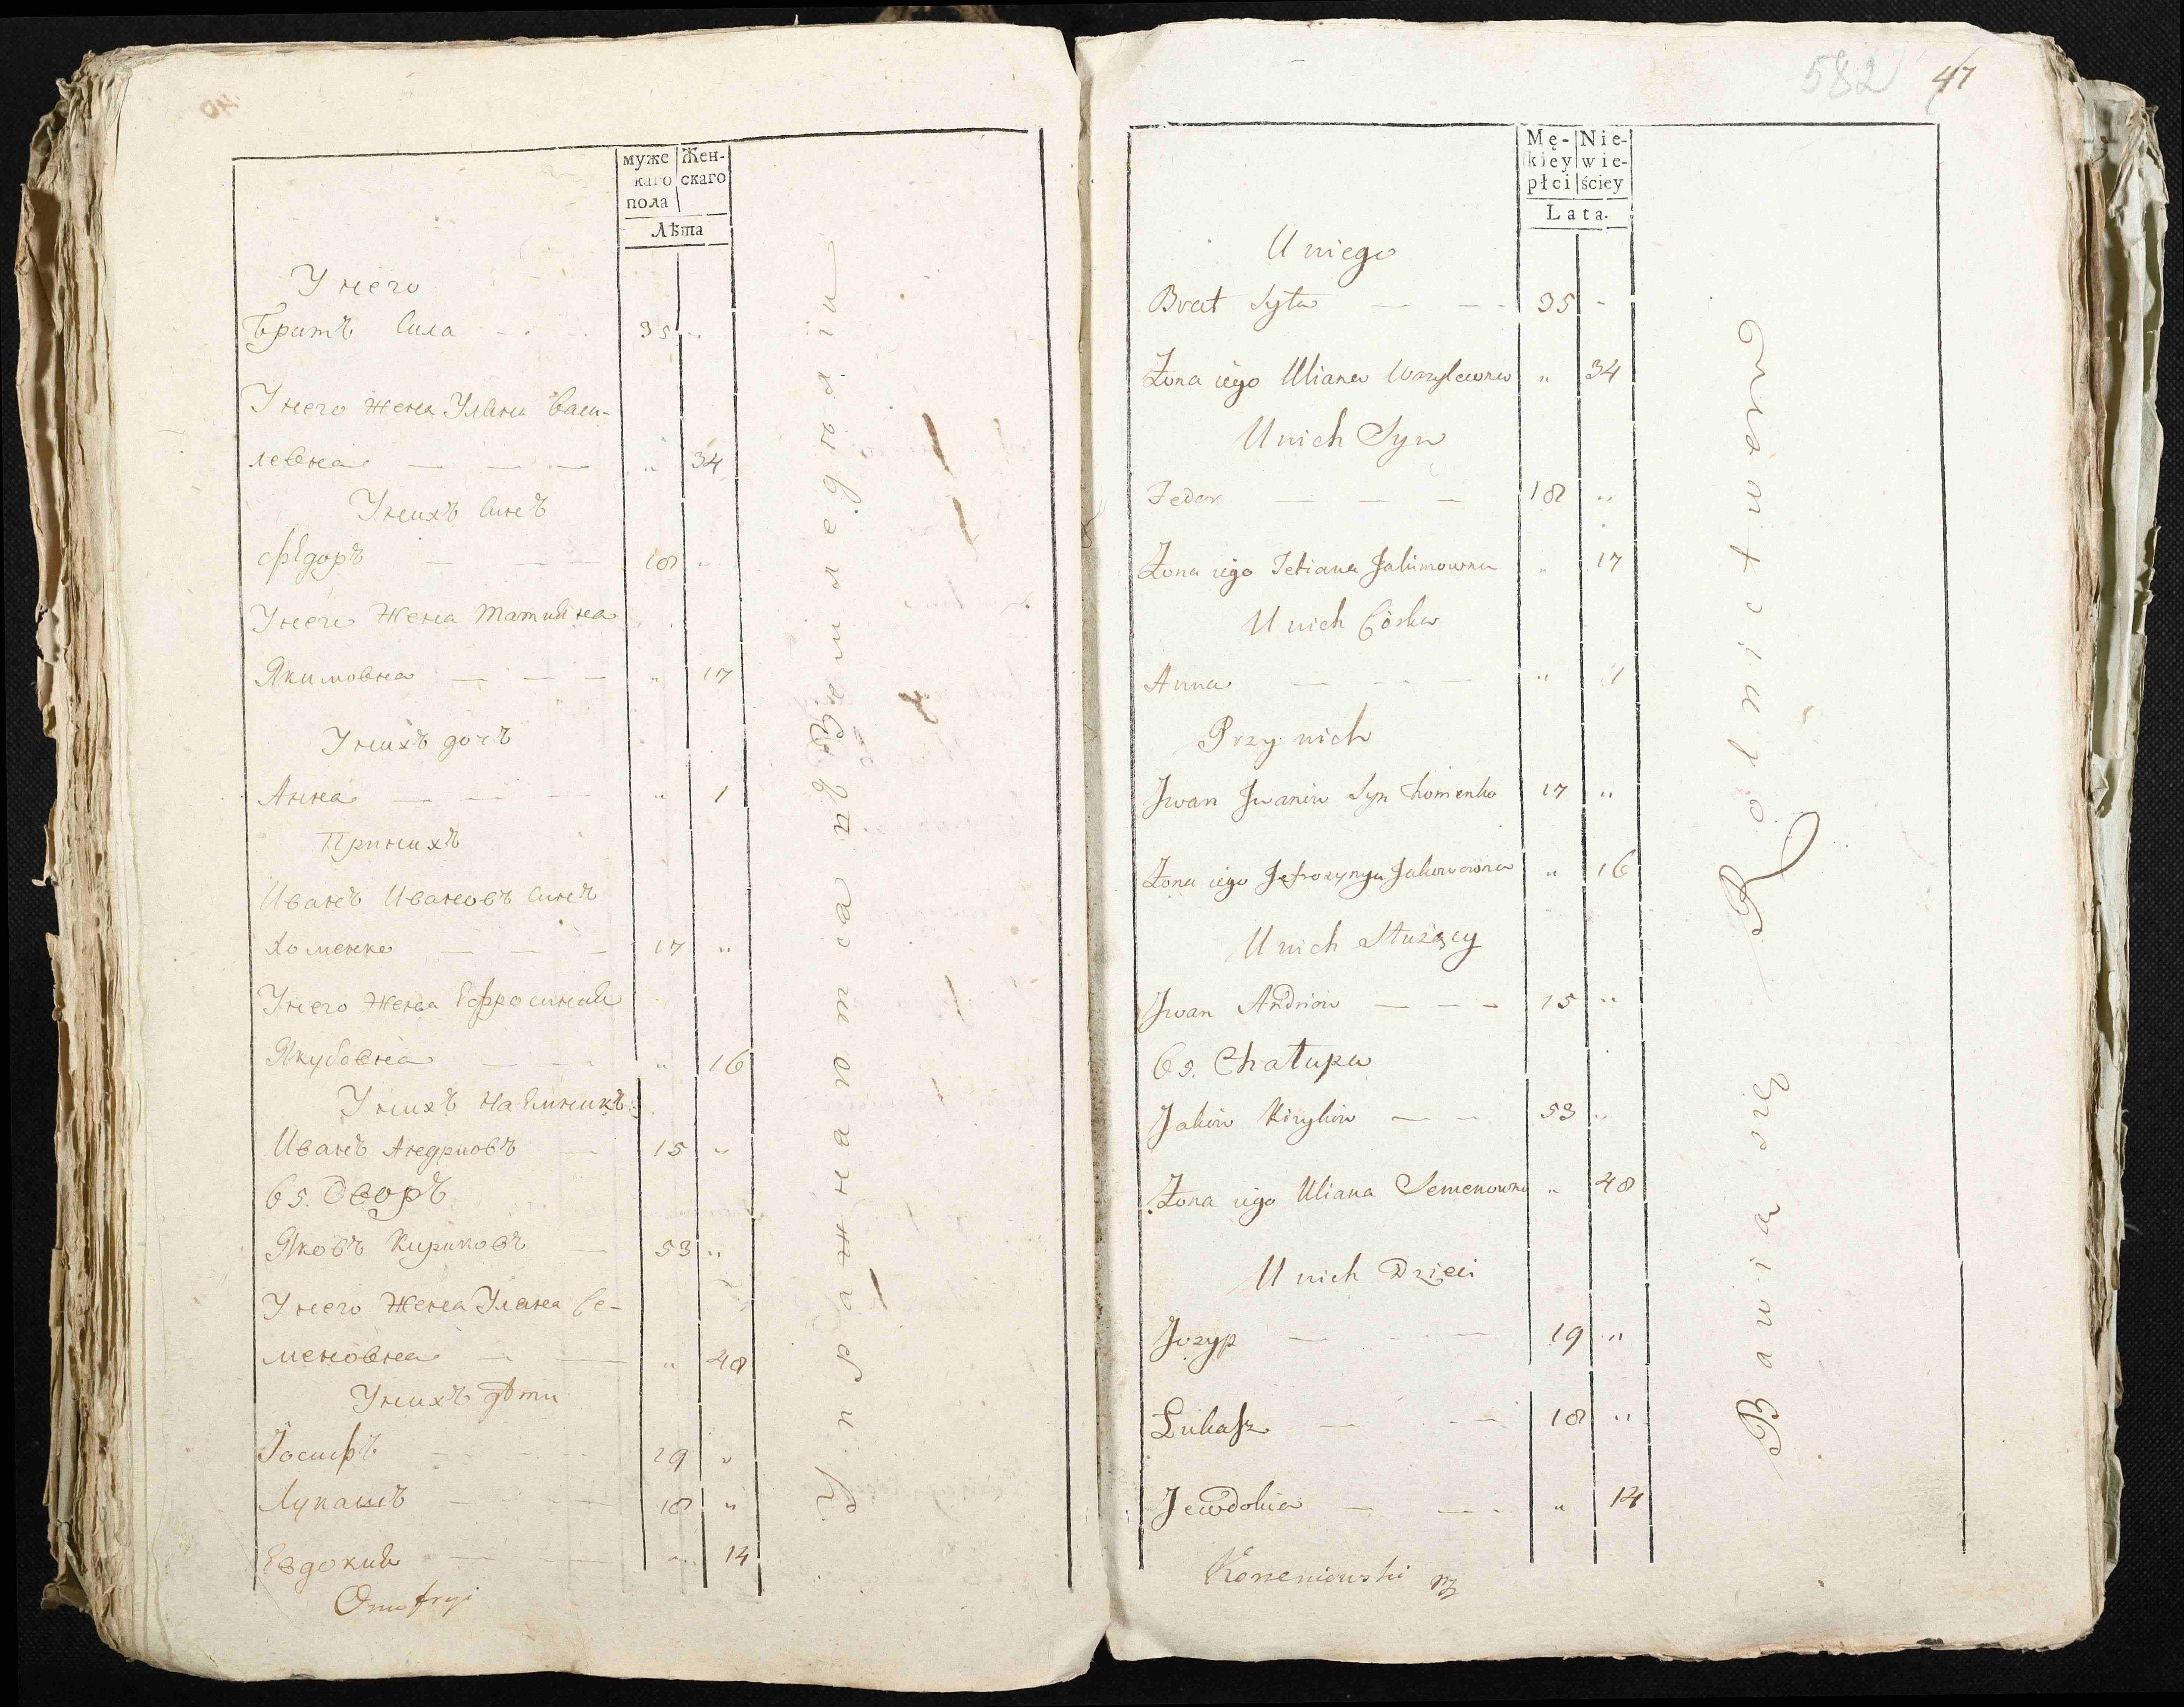 муже
каго
пола
Жен-
скаго
Лѣта
У него
Братъ Сила — 35 "
У него жена Уляна Васи-
левна — — — " 34
У нихъ Синъ
Ѳедоръ — — — 18 "
У него Жена Татияна
Якимовна — — — " 17
У нихъ дочъ
Анна — — — " 1
При нихъ
Иванъ Ивановъ Синъ
Хоменко — — — 17 "
У него Жена Ефросиния
Якубовна — — — " 16
У нихъ Наемникъ
Иванъ Андриовъ — 15 "
65. Дворъ
Яковъ Кириковъ — 53 "
У него Жена Уляна Се-
меновна — — " 48
У нихъ дѣти
Іосифъ — — — 19 "
Лукашъ — — — 18 "
Евдокия — — — " 14
Onufryi
Упражнаются въ земледѣліи
582 47
Mę-
kiey
płci
Nie-
wie-
ściey
Lata.
U niego
Brat Syla — — — 35 "
Żona iego Uliana Wazylewna " 34
U nich Syn
Fedor — — — 18 "
Żona iego Tetiana Jakimowna " 17
U nich Córka
Anna — — — " 1
Przy nich
Jwan Jwanów Syn Homenko 17 "
Żona iego Jefrozynya Jakowowna " 16
U nich Służący
Jwan Andriow — — — 15 "
65. Chałupa
Jaków Kiryków — — 53 "
Żona iego Uliana Semenowna " 48
U nich Dzieci
Jozyp — — — 19 "
Lukasz — — — 18 "
Jewdokia — — — " 14
Korzeniowski
Bawia się Rolnictwem